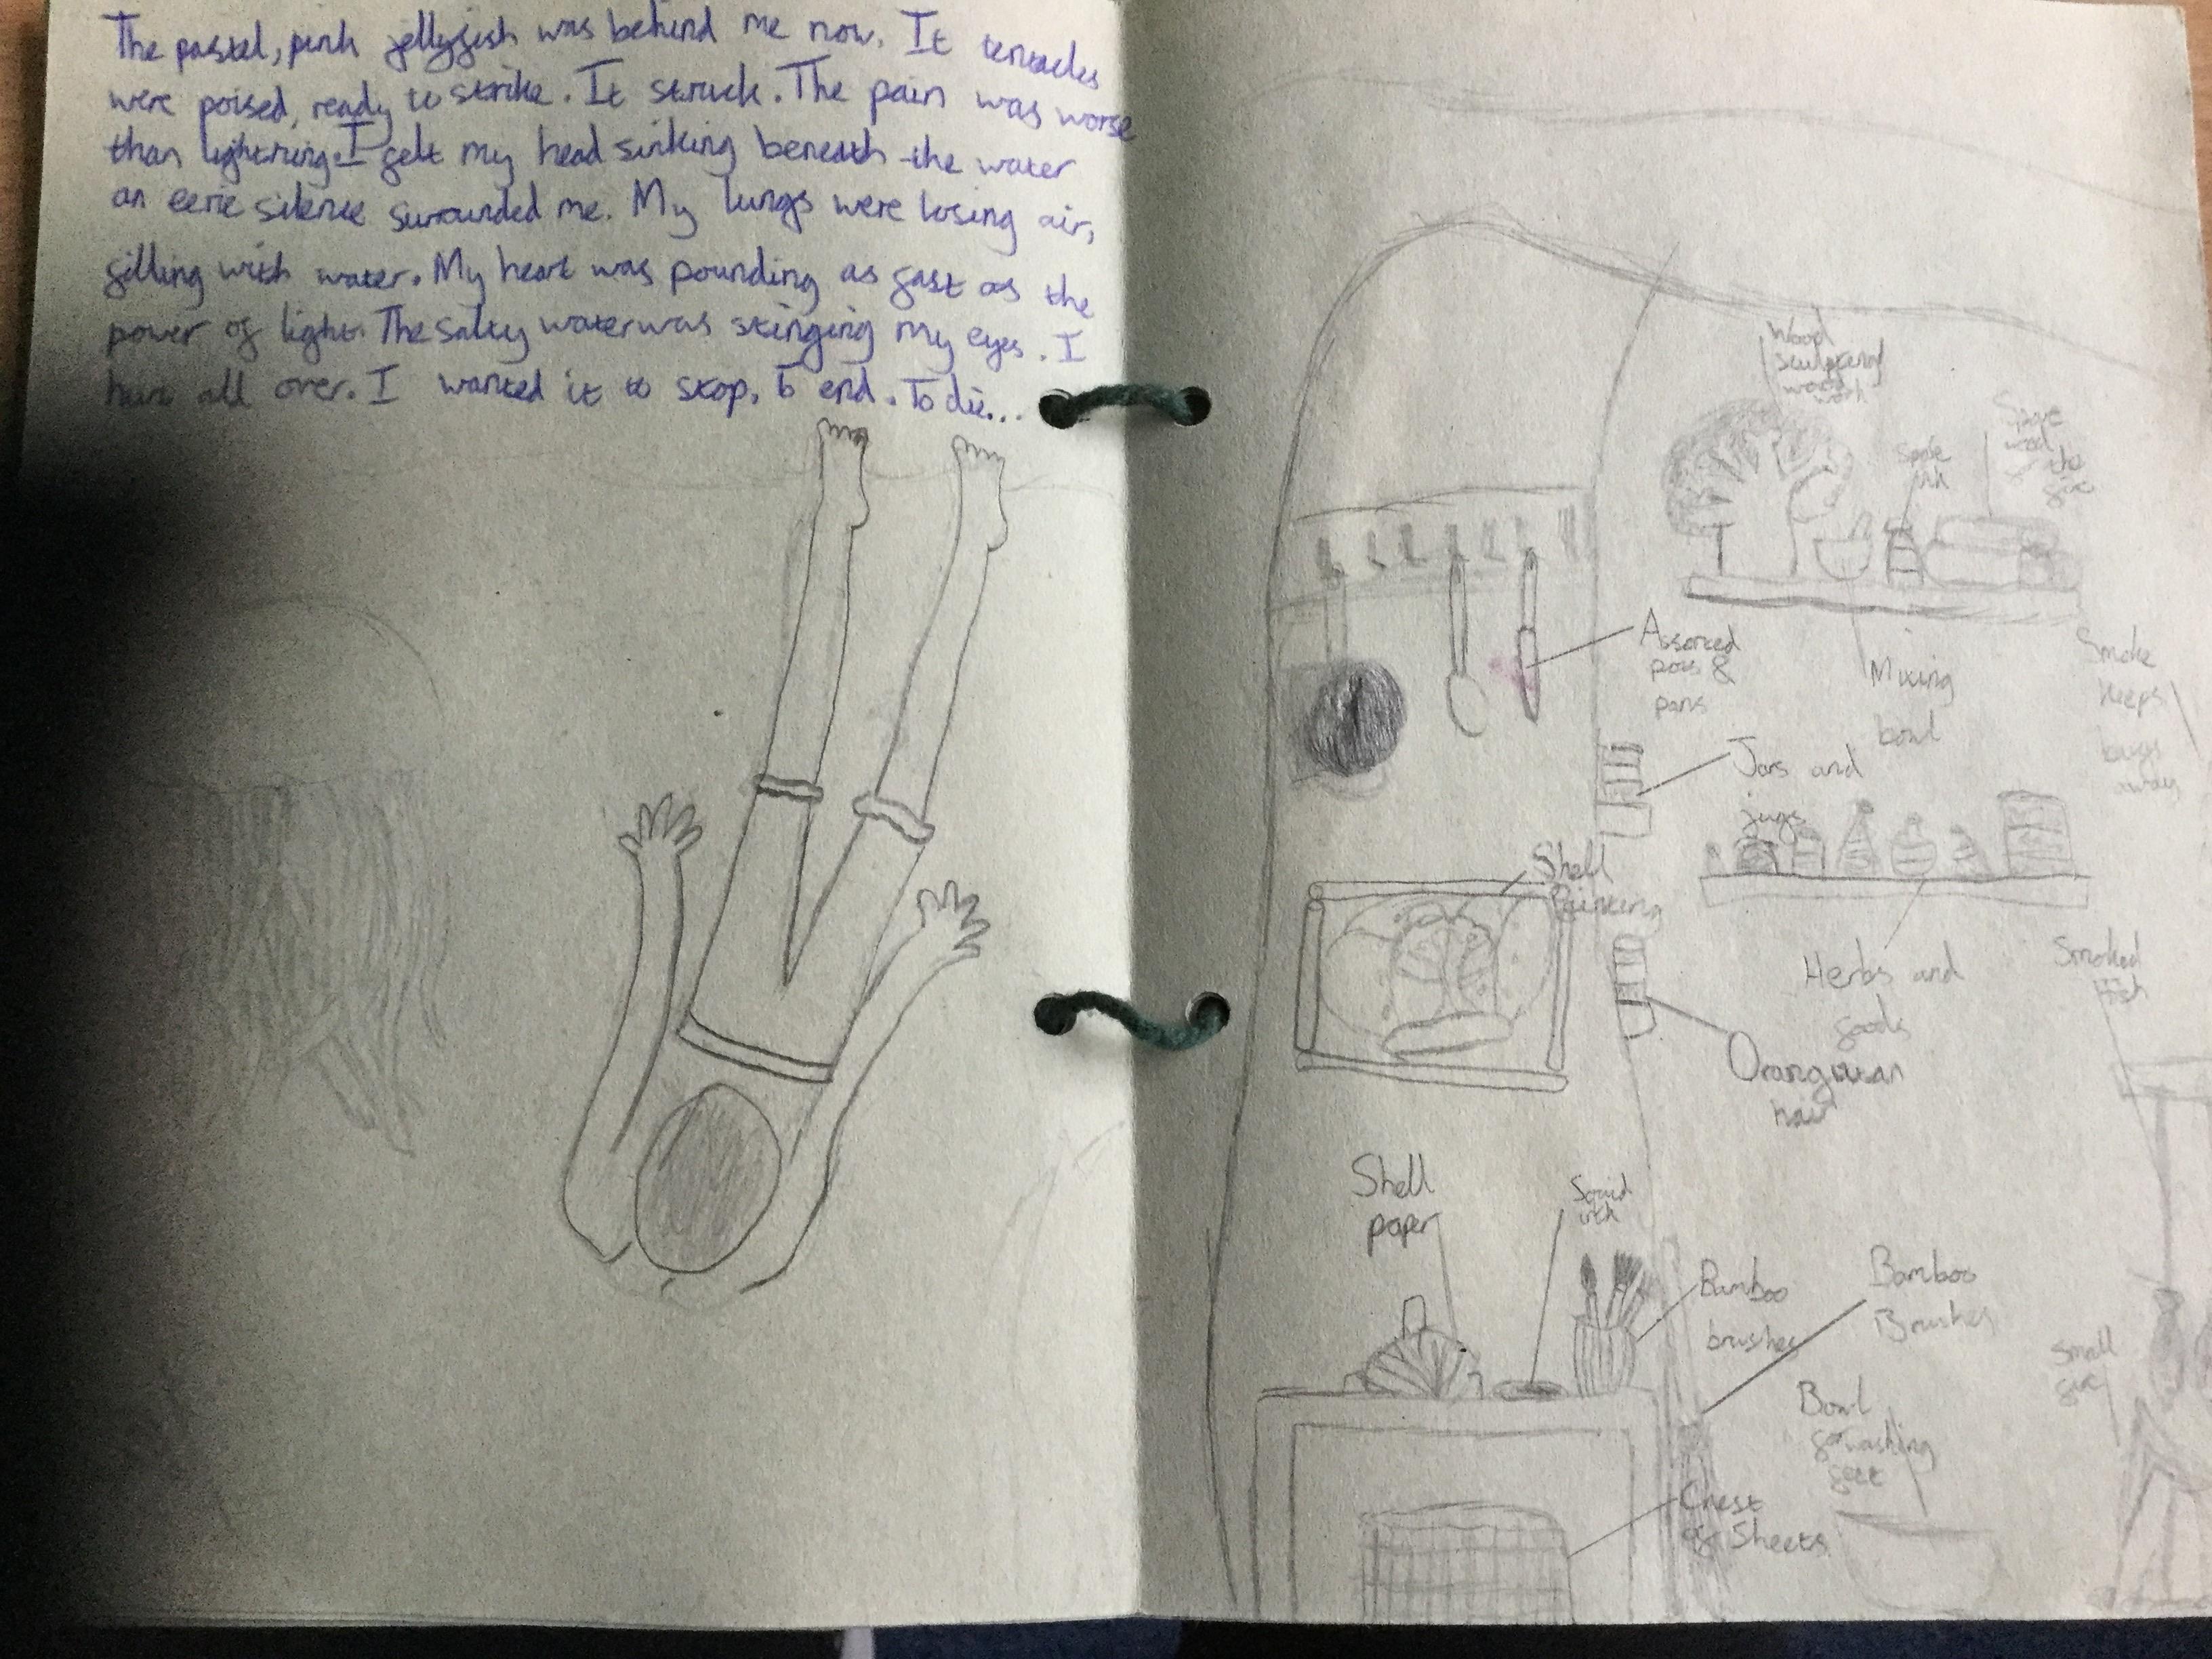 The pastel, pink jellyfish was behind me now. It tentacles
were poised, ready to strike. It struck. The pain was worse
than lightning. I felt my head sinking beneath the water
an eerie silence surrounded me. My lungs were losing air,
filling with water. My heart was pounding as fast as the
power of light. The salty water was stinging my eyes. I
hurt all over. I wanted it to stop. To end. To die...
Wood
sculpting
wood
work
Spare
ink
Spare
wood
for the
fire
Assorted
pots &
pans
Mixing
bowl
Smoke
keeps
bugs
away
Jars and
jugs
Shell
Painting
Herbs and
foods
Smoked
fish
Orangutan
hair
Shell
paper
Squid
ink
Bamboo
brushes
Bamboo
Brushes
Small
fire
Bowl
for washing
feet
Chest
of Sheets